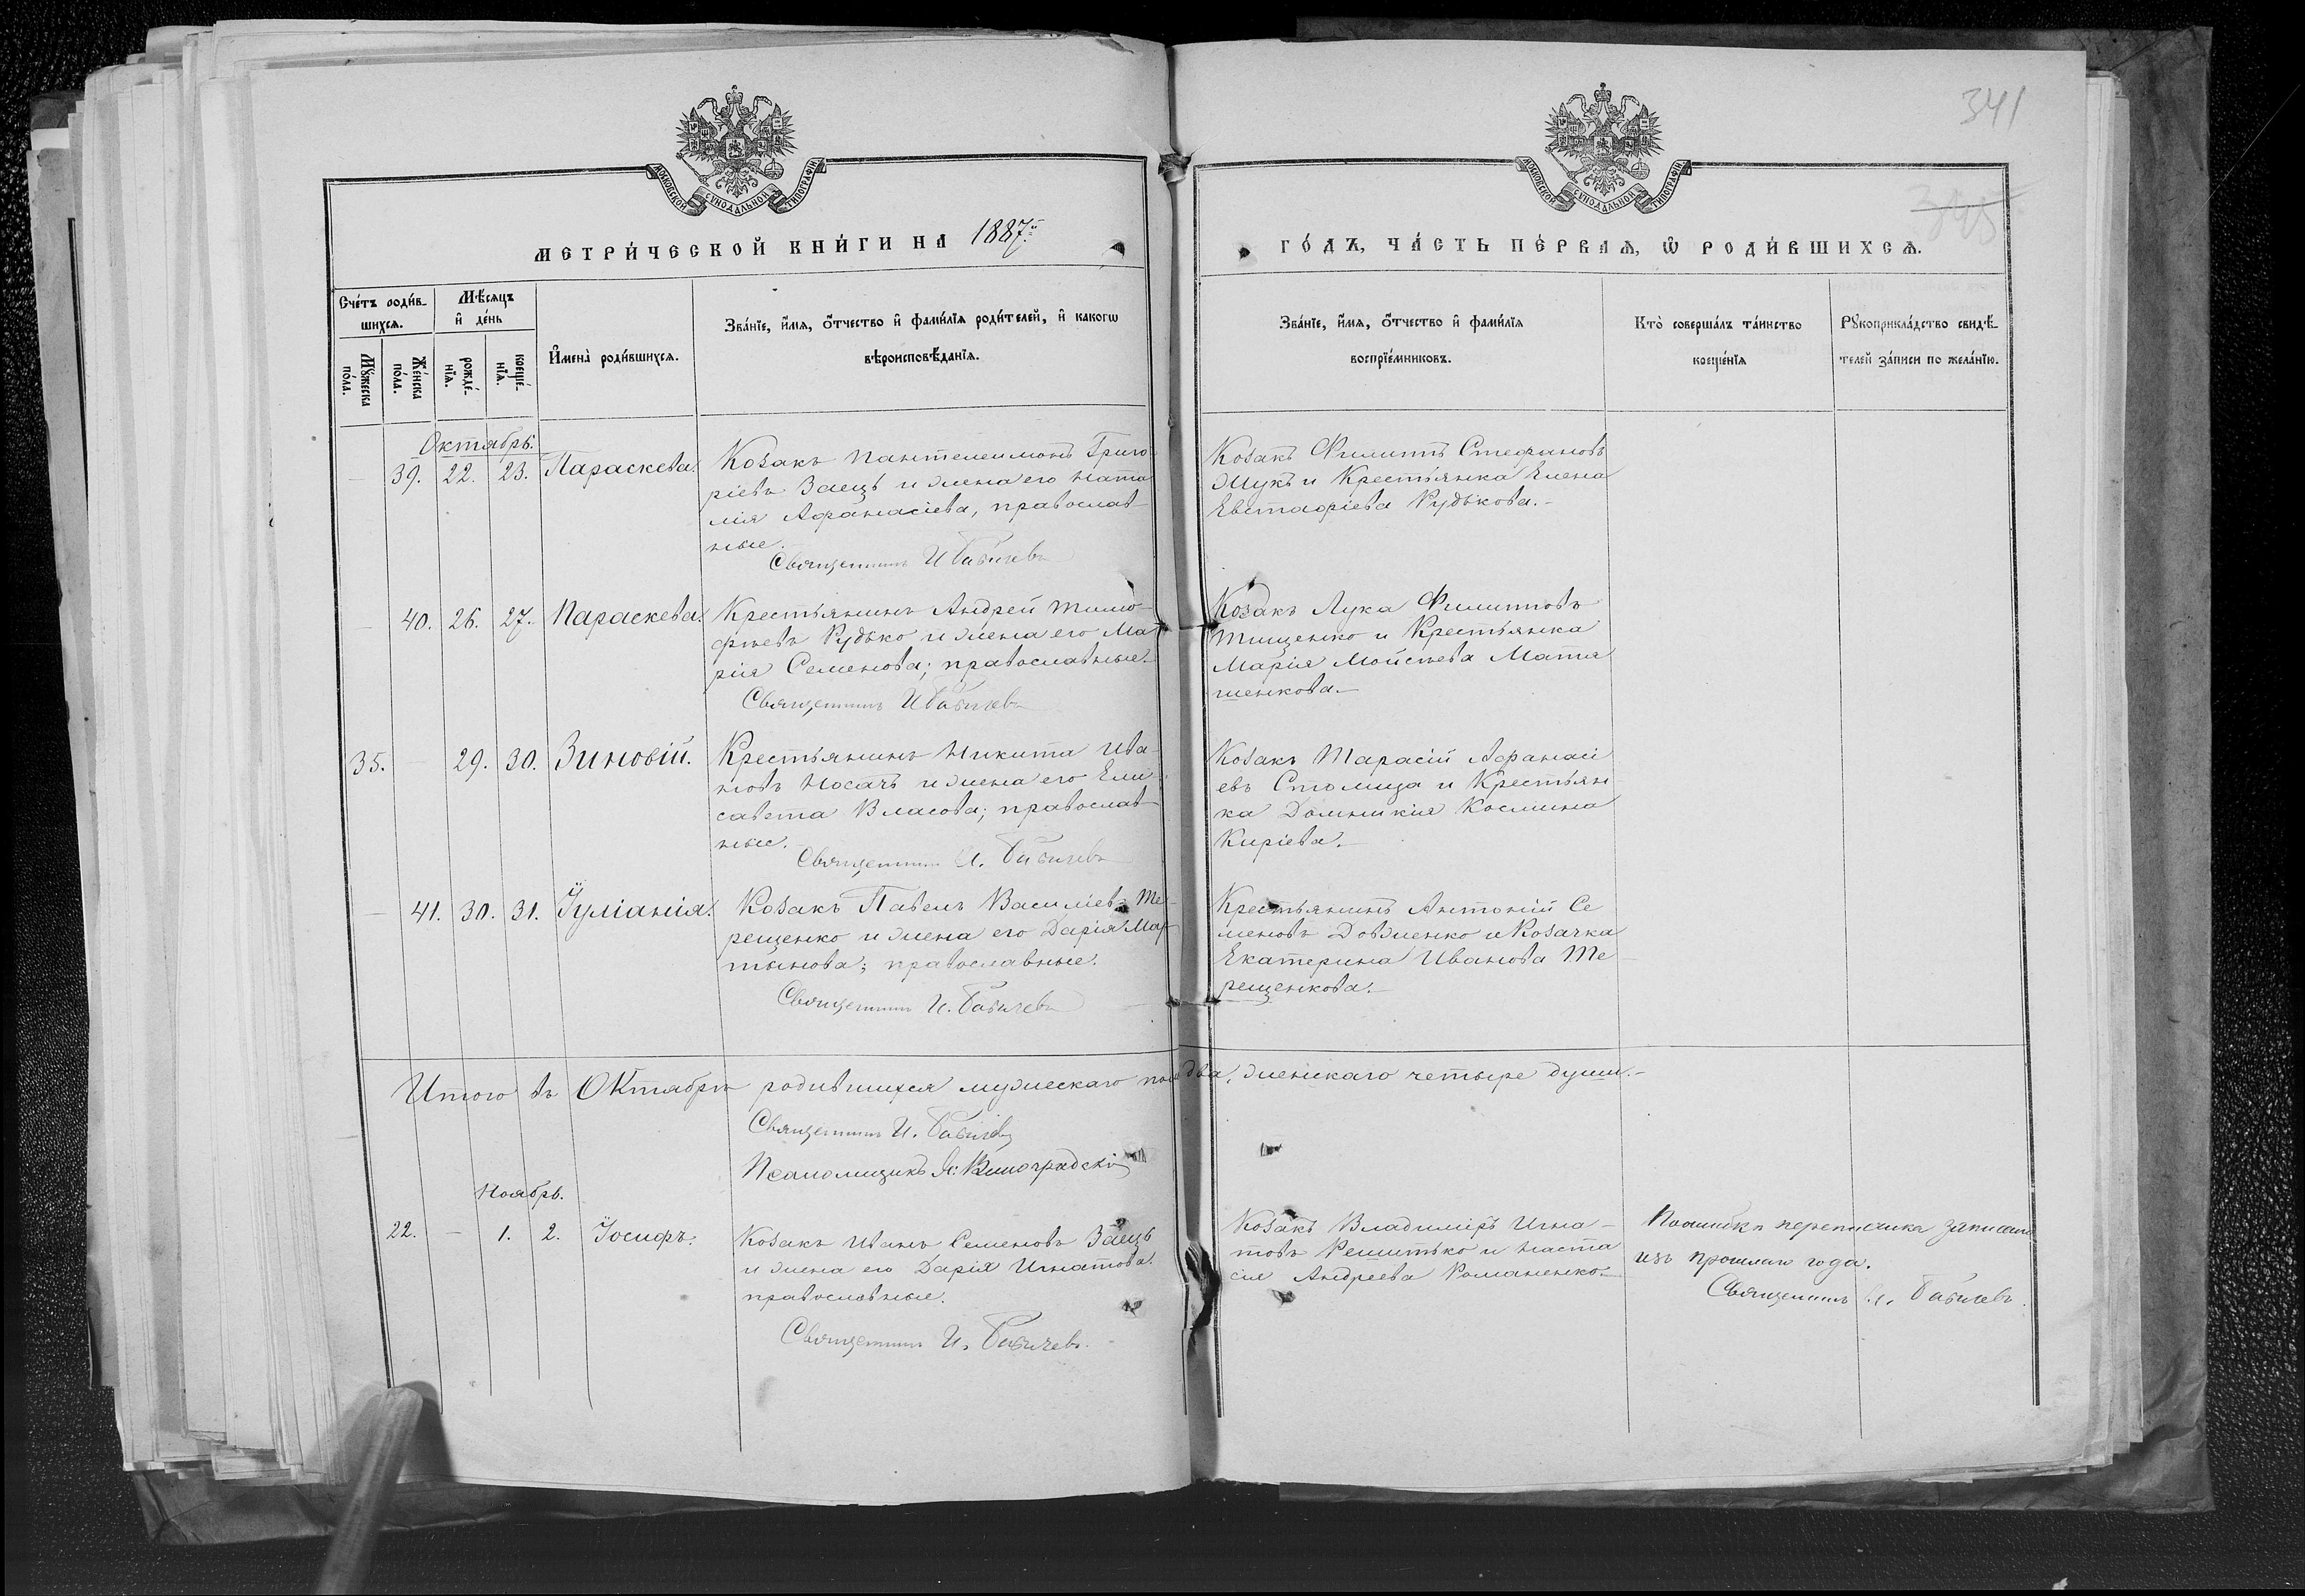 341
345
МОСКОВСКОЙ СѴНОДАЛЬНОЙ ТИПОГРАФІИ
МОСКОВСКОЙ СѴНОДАЛЬНОЙ ТИПОГРАФІИ
МЕТРИ́ЧЕСКОЙ КНИ́ГИ НА 1887й
ГО́ДЪ, ЧА́СТЬ ПЕ́РВАѦ, Ѡ҆ РОДИ́ВШИХСѦ.
Сче́тъ роди́в-
шихсѧ.
Мѣ́сѧцъ
и҆ де́нь
Мꙋ́жеска
по́ла.
Же́нска
по́ла.
рожде́-
нїѧ.
креще́-
нїѧ.
И҆мена̀ роди́вшихсѧ.
Зва́нїе, и҆́мѧ, ѻ҆́тчество и҆ фами́лїѧ роди́телей, и҆ како́гѡ
вѣроисповѣ́данїѧ.
Зва́нїе, и҆́мѧ, ѻ҆́тчество и҆ фами́лїѧ
воспрїе́мниковъ.
Кто̀ соверша́лъ та́инство
креще́нїѧ
Рꙋкоприкла́дство свидѣ́-
телей за́писи по жела́нїю.
Октябрь.
— 39. 22. 23. Параскева.
Козакъ Пантелеимонъ Григо
ріевъ Заецъ и жена его Ната
лія Афанасіева, православ
ные.
Священникъ И Бабичевъ
Козакъ Филиппъ Стефановъ
Жукъ и Крестьянка Елена
Евстафіева Рудькова.-
— 40. 26. 27. Параскева.
Крестьянинъ Андрей Тимо-
фѣевъ Рудько и жена его Ма
рія Семенова; православные.
Священникъ И Бабичевъ
Козакъ Лука Филипповъ
Тищенко и Крестьянка
Марія Мойсѣева Матя
шенкова.—
35. — 29. 30. Зиновій.
Крестьянинъ Никита Ива
новъ Носачъ и жена его Ели
савета Власова; православ
ные.
Священникъ И. Бабичевъ
Козакъ Тарасій Афанасі
евъ Столица и Крестьян
ка Домникія Космина
Киріева.—
— 41. 30. 31. Іуліанія.
Козакъ Павелъ Василіевъ Те-
рещенко и жена его Дарія Мар
тынова; православные.
Священникъ И. Бабичевъ
Крестьянинъ Антоній Се
меновъ Довженко и Козачка
Екатерина Иванова Те
рещенкова.—
Итого въ Октябрѣ родившихся мужескаго пола два, женскаго четыре души.—
Священникъ И. Бабичевъ
Псаломщикъ Виноградскій
Ноябрь.
22. — 1. 2. Іосифъ.
Козакъ Иванъ Семеновъ Заецъ
и жена его Дарія Игнатова.
православные.
Священникъ И. Бабичевъ.
Козакъ Владиміръ Игна-
товъ Решитько и Наста
сія Андреева Романенко.—
По ошибкѣ переписчика записано
изъ прошлаго года.
Священникъ И. Бабичевъ.